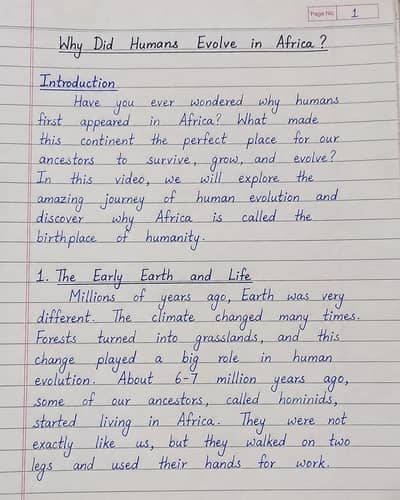 Page No. 1
Why Did Humans Evolve in Africa?
Introduction
Have you ever wondered why humans
first appeared in Africa? What made
this continent the perfect place for our
ancestors to survive, grow, and evolve?
In this video, we will explore the
amazing journey of human evolution and
discover why Africa is called the
birthplace of humanity.
1. The Early Earth and Life
Millions of years ago, Earth was very
different. The climate changed many times.
Forests turned into grasslands, and this
change played a big role in human
evolution. About 6-7 million years ago,
some of our ancestors, called hominids,
started living in Africa. They were not
exactly like us, but they walked on two
legs and used their hands for work.